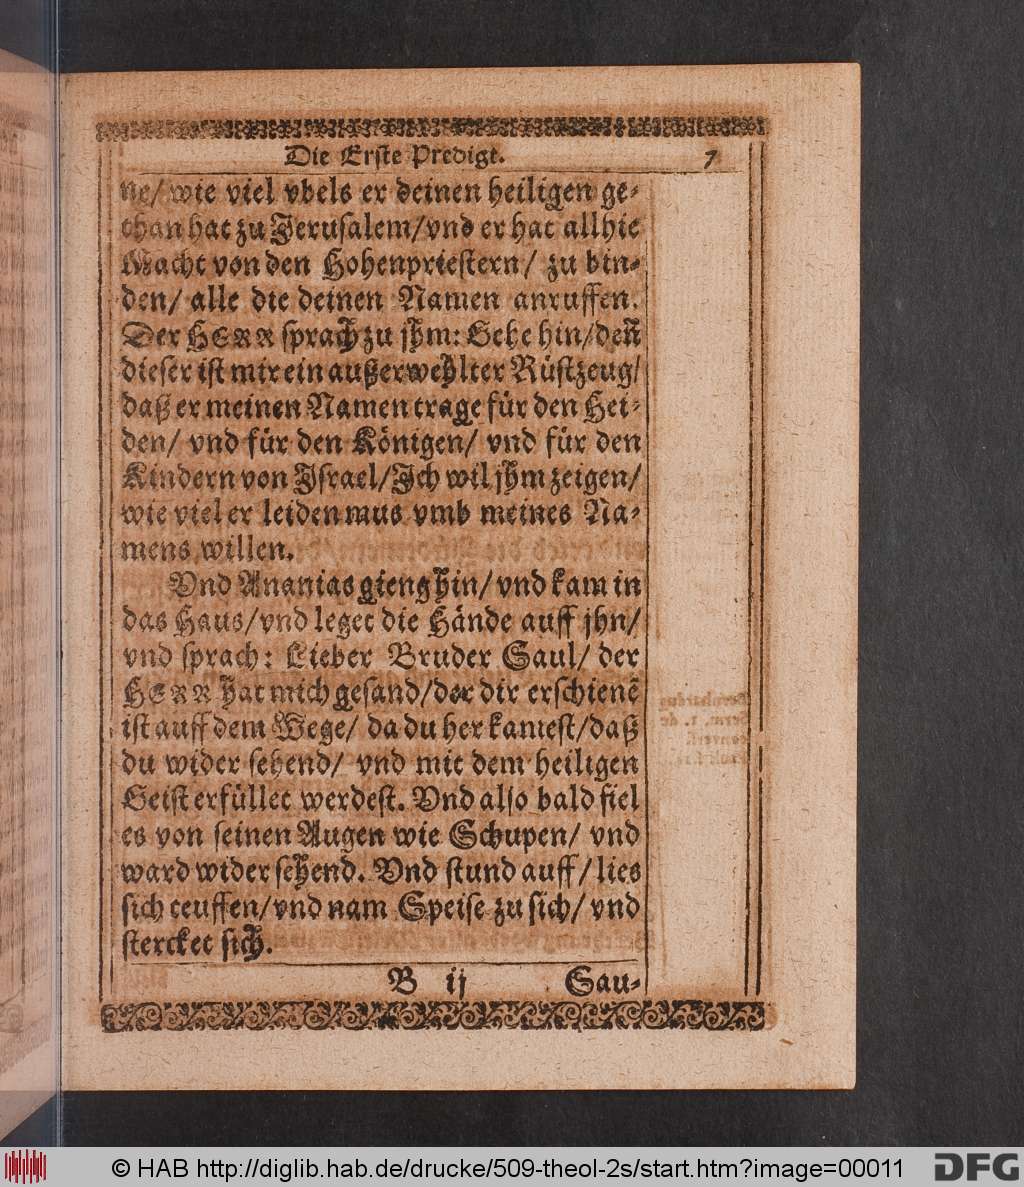 Die Erste Predigt. 7
ne/ wie viel vbels er deinen heiligen ge-
than hat zu Jerusalem/ vnd er hat allhie
Macht von den Hohenpriestern/ zu bin-
den/ alle die deinen Namen anruffen.
Der HERR sprach zu jhm: Gehe hin/ deñ
dieser ist mir ein außerwehlter Rüstzeug/
daß er meinen Namen trage für den Hei-
den/ vnd für den Königen/ vnd für den
Kindern von Israel/ Ich wil jhm zeigen/
wie viel er leiden mus vmb meines Na-
mens willen.
Vnd Ananias gieng hin/ vnd kam in
das Haus/ vnd leget die Hände auff jhn/
vnd sprach: Lieber Bruder Saul/ der
HERR hat mich gesand/ der dir erschienẽ
ist auff dem Wege/ da du her kamest/ daß
du wider sehend/ vnd mit dem heiligen
Geist erfüllet werdest. Vnd also bald fiel
es von seinen Augen wie Schupen/ vnd
ward wider sehend. Vnd stund auff/ lies
sich teuffen/ vnd nam Speise zu sich/ vnd
stercket sich.
B ij Sau-
© HAB http://diglib.hab.de/drucke/509-theol-2s/start.htm?image=00011 DFG